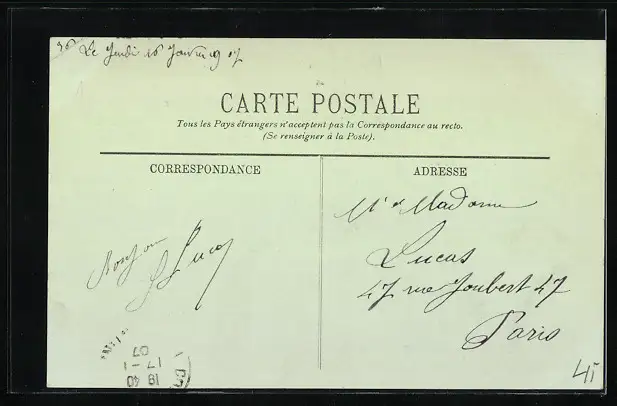 Le Jeudi 16 Janvier 07
CARTE POSTALE
Tous les Pays étrangers n'acceptent pas la Correspondance au recto.
(Se renseigner à la Poste).
CORRESPONDANCE
Bonjour
Lucas
ADRESSE
Mr et Madame
Lucas
47 rue Joubert 47
Paris
18 40
17 -1
07
41